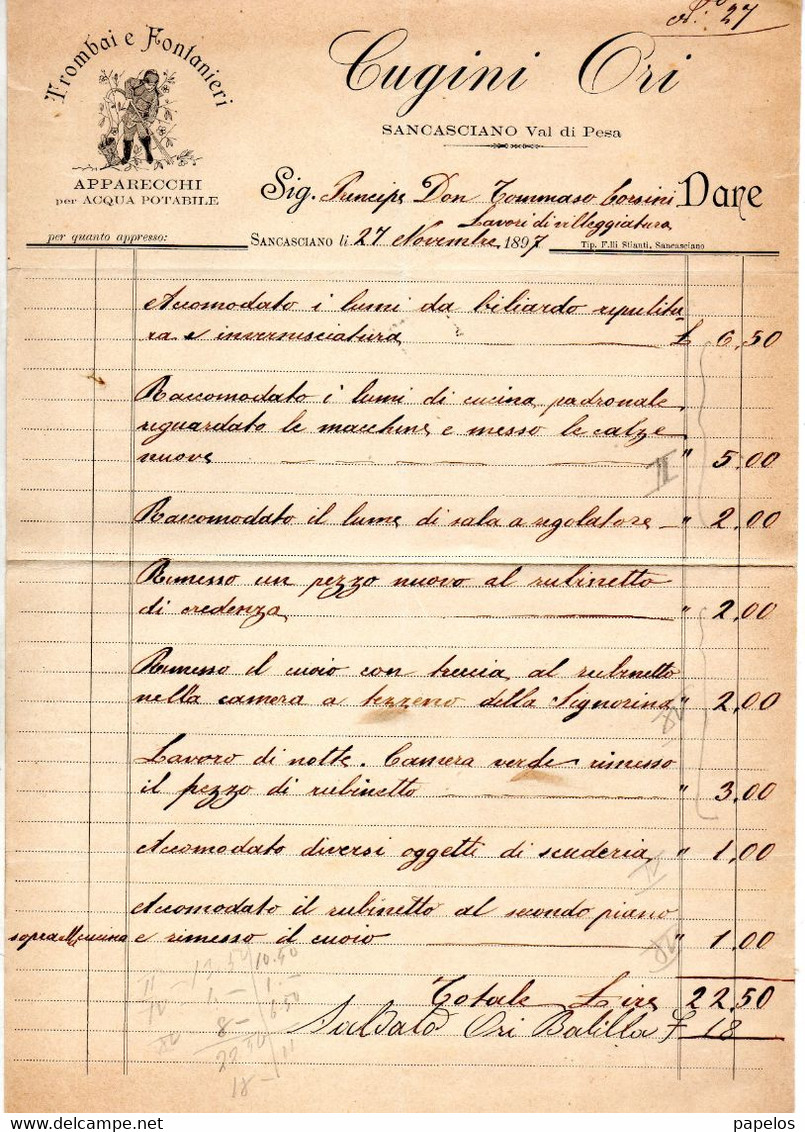 N.º 27
Trombai e Fontanieri
APPARECCHI
per ACQUA POTABILE
Cugini Ori
SANCASCIANO Val di Pesa
Sig. Principe Don Tommaso Corsini Dare
Lavori di villeggiatura
per quanto appresso:
SANCASCIANO li 27 Novembre 1897
Tip. F.lli Stianti, Sancasciano
Accomodato i lumi da biliardo ripulitu-
ra e inverniciatura £ 6,50
Raccomodato i lumi di cucina padronale,
riguardato le macchine e messo le calze
nuove " 5,00
II
Raccomodato il lume di sala a regolatore " 2,00
Rimesso un pezzo nuovo al rubinetto
di credenza " 2,00
Rimesso il cuoio con treccia al rubinetto
nella camera a terreno della Signorina " 2,00
Lavoro di notte. Camera verde rimesso
il pezzo di rubinetto " 3,00
Accomodato diversi oggetti di scuderia " 1,00
IV
Accomodato il rubinetto al secondo piano
sopra cucina e rimesso il cuoio " 1,00
Totale Lire 22,50
Saldato Ori Balilla £ 18
II - 13.50
IV 1.-
8-
22.50
18-
10.50
1.-
6.50
papelos